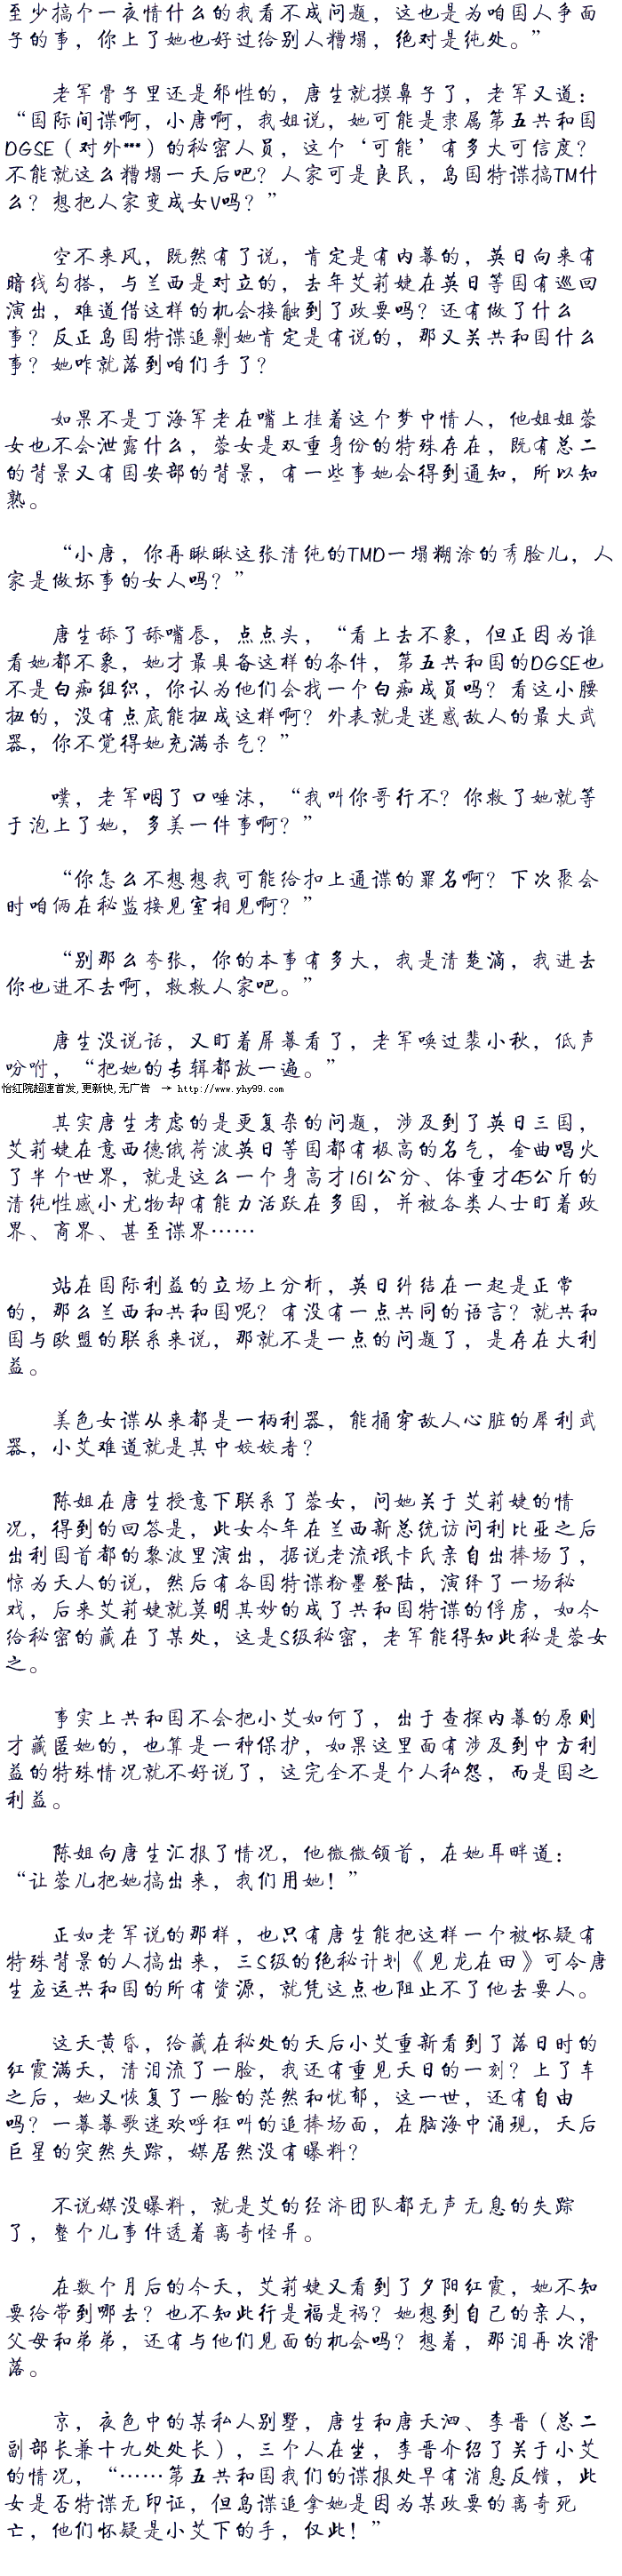 至少搞个一夜情什么的我看不成问题，这也是为咱国人争面
子的事，你上了她也好过给别人糟塌，绝对是纯处。”
老军骨子里还是邪性的，唐生就摸鼻子了，老军又道：
“国际间谍啊，小唐啊，我姐说，她可能是隶属第五共和国
DGSE（对外***）的秘密人员，这个‘可能’有多大可信度？
不能就这么糟塌一天后吧？人家可是良民，岛国特谍搞TM什
么？想把人家变成女V吗？”
空不来风，既然有了说，肯定是有内幕的，英日向来有
暗线勾搭，与兰西是对立的，去年艾莉婕在英日等国有巡回
演出，难道借这样的机会接触到了政要吗？还有做了什么
事？反正岛国特谍追剿她肯定是有说的，那又关共和国什么
事？她咋就落到咱们手了？
如果不是丁海军老在嘴上挂着这个梦中情人，他姐姐蓉
女也不会泄露什么，蓉女是双重身份的特殊存在，既有总二
的背景又有国安部的背景，有一些事她会得到通知，所以知
熟。
“小唐，你再瞅瞅这张清纯的TMD一塌糊涂的秀脸儿，人
家是做坏事的女人吗？”
唐生舔了舔嘴唇，点点头，“看上去不象，但正因为谁
看她都不象，她才最具备这样的条件，第五共和国的DGSE也
不是白痴组织，你认为他们会找一个白痴成员吗？看这小腰
扭的，没有点底能扭成这样啊？外表就是迷惑敌人的最大武
器，你不觉得她充满杀气？”
噗，老军咽了口唾沫，“我叫你哥行不？你救了她就等
于泡上了她，多美一件事啊？”
“你怎么不想想我可能给扣上通谍的罪名啊？下次聚会
时咱俩在秘监接见室相见啊？”
“别那么夸张，你的本事有多大，我是清楚滴，我进去
你也进不去啊，救救人家吧。”
唐生没说话，又盯着屏幕看了，老军唤过裴小秋，低声
吩咐，“把她的专辑都放一遍。”
怡红院超速首发,更新快,无广告 → http://www.yhy99.com
其实唐生考虑的是更复杂的问题，涉及到了英日三国，
艾莉婕在意西德俄荷波英日等国都有极高的名气，金曲唱火
了半个世界，就是这么一个身高才161公分、体重才45公斤的
清纯性感小尤物却有能力活跃在多国，并被各类人士盯着政
界、商界、甚至谍界……
站在国际利益的立场上分析，英日纠结在一起是正常
的，那么兰西和共和国呢？有没有一点共同的语言？就共和
国与欧盟的联系来说，那就不是一点的问题了，是存在大利
益。
美色女谍从来都是一柄利器，能捅穿敌人心脏的犀利武
器，小艾难道就是其中姣姣者？
陈姐在唐生授意下联系了蓉女，问她关于艾莉婕的情
况，得到的回答是，此女今年在兰西新总统访问利比亚之后
出利国首都的黎波里演出，据说老流氓卡氏亲自出棒场了，
惊为天人的说，然后有各国特谍粉墨登陆，演绎了一场秘
戏，后来艾莉婕就莫明其妙的成了共和国特谍的俘虏，如今
给秘密的藏在了某处，这是S级秘密，老军能得知此秘是蓉女
之。
事实上共和国不会把小艾如何了，出于查探内幕的原则
才藏匿她的，也算是一种保护，如果这里面有涉及到中方利
益的特殊情况就不好说了，这完全不是个人私怨，而是国之
利益。
陈姐向唐生汇报了情况，他微微颌首，在她耳畔道：
“让蓉儿把她搞出来，我们用她！”
正如老军说的那样，也只有唐生能把这样一个被怀疑有
特殊背景的人搞出来，三S级的绝秘计划《见龙在田》可令唐
生应运共和国的所有资源，就凭这点也阻止不了他去要人。
这天黄昏，给藏在秘处的天后小艾重新看到了落日时的
红霞满天，清泪流了一脸，我还有重见天日的一刻？上了车
之后，她又恢复了一脸的茫然和忧郁，这一世，还有自由
吗？一幕幕歌迷欢呼狂叫的追棒场面，在脑海中涌现，天后
巨星的突然失踪，媒居然没有曝料？
不说媒没曝料，就是艾的经济团队都无声无息的失踪
了，整个儿事件透着离奇怪异。
在数个月后的今天，艾莉婕又看到了夕阳红霞，她不知
要给带到哪去？也不知此行是福是祸？她想到自己的亲人，
父母和弟弟，还有与他们见面的机会吗？想着，那泪再次滑
落。
京，夜色中的某私人别墅，唐生和唐天泗、李晋（总二
副部长兼十九处处长），三个人在坐，李晋介绍了关于小艾
的情况，“……第五共和国我们的谍报处早有消息反馈，此
女是否特谍无印证，但岛谍追拿她是因为某政要的离奇死
亡，他们怀疑是小艾下的手，仅此！”